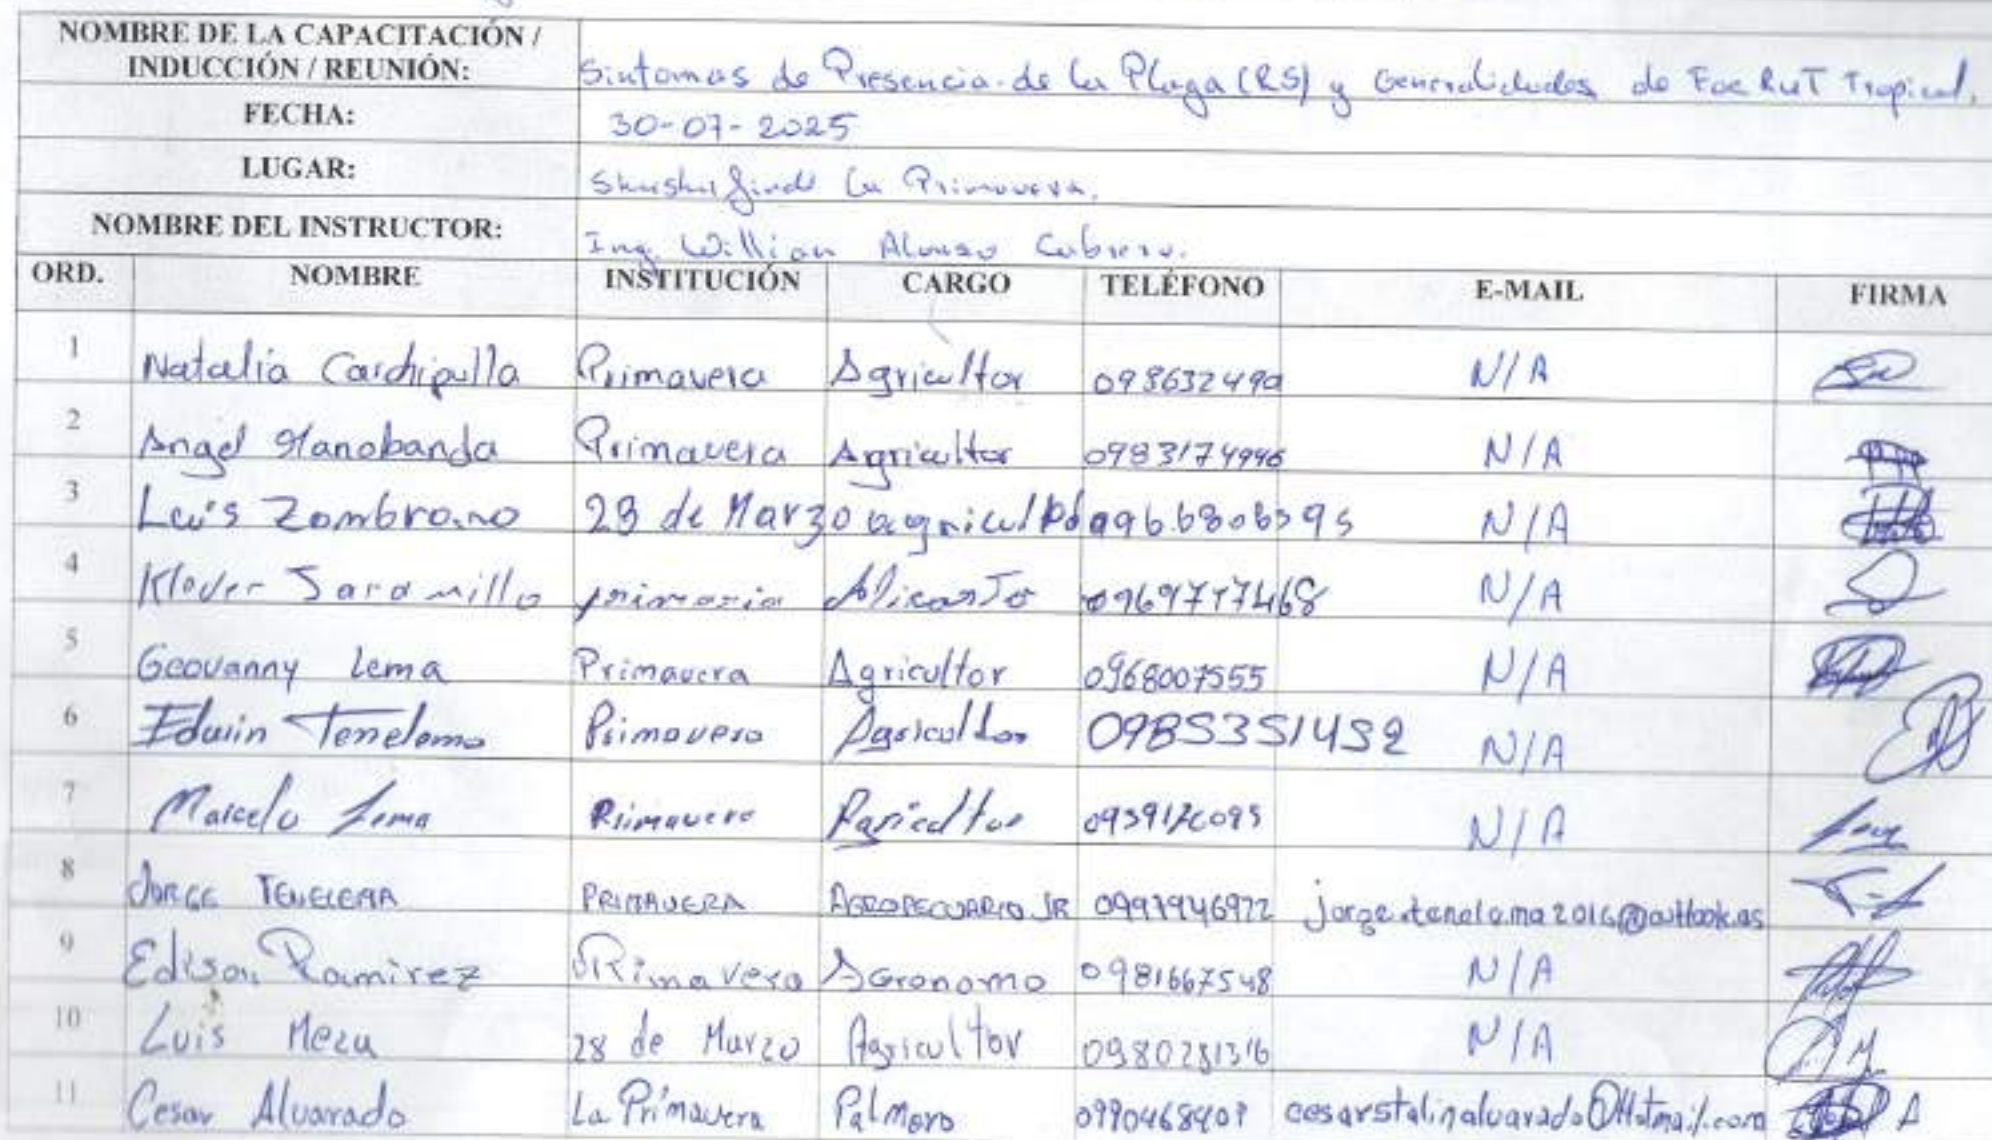 NOMBRE DE LA CAPACITACIÓN / INDUCCIÓN / REUNIÓN: Sintomas de Presencia de la Plaga (RS) y Generalidades de Foc RuT Tropical.
FECHA: 30-07-2025
LUGAR: Shushufindi La Primavera.
NOMBRE DEL INSTRUCTOR: Ing. Willian Alonso Cabrera.
ORD. NOMBRE INSTITUCIÓN CARGO TELÉFONO E-MAIL FIRMA
1 Natalia Primavera Agricultor 098632490 N/A
2 Angel Manobanda Primavera Agricultor 0983174946 N/A
3 Luis Zambrano 28 de Marzo agricultor N/A
4 Klever Jaramillo N/A
5 Geovanny Lema Primavera Agricultor 0968007555 N/A
6 Edwin Tenelema Primavera Agricultor 0985351452 N/A
7 Marcelo Lema Primavera Agricultor N/A
8 JORGE TENELEMA PRIMAVERA AGROPECUARIO JR jorge.tenelema2016@outlook.es
9 Edison Ramirez Primavera Agronomo 0981667548 N/A
10 Luis Meza 28 de Marzo Agricultor 0980281316 N/A
11 Cesar Alvarado La Primavera Palmero cesarstalinalvarado@Hotmail.com